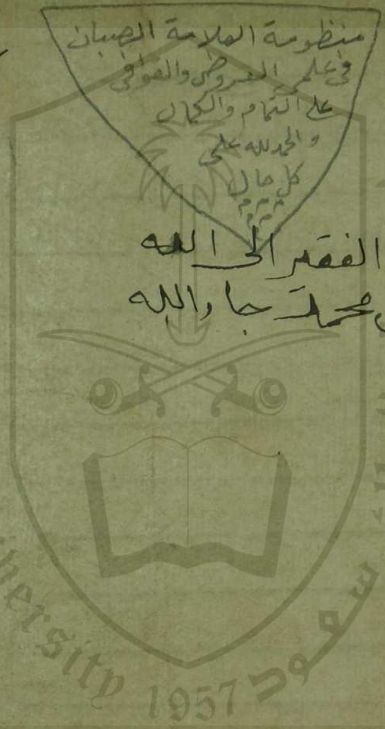 منظومة العلامة الصبان
في علمي العروض والقوافي
على التمام والكمال
والحمد لله على
كل حال
الفقير الى الله
محمد جاد الله
University 1957 سعود